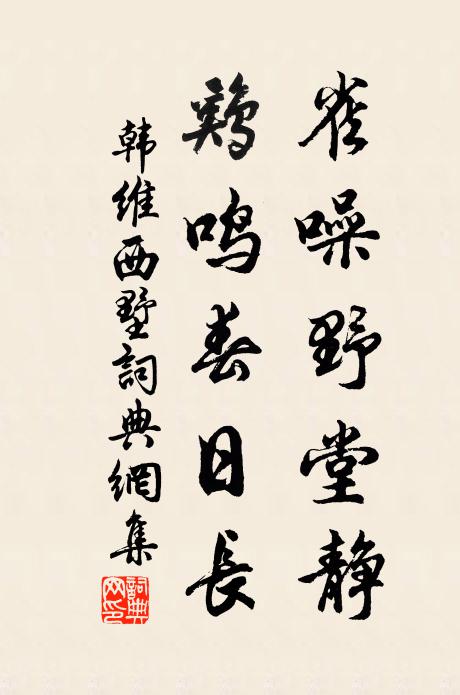 雀噪野堂静
鷄鸣春日長
韩維西墅詞典網集
詞典网印